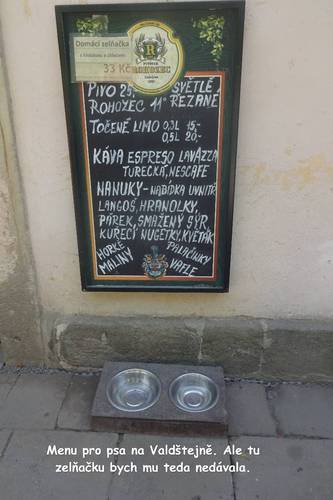 Domácí zelňačka
s klobásou a chlebem
33 Kč
R
PIVOVAR
ROHOZEC
PIVO 25,- SVĚTLÉ,
ROHOZEC 11° ŘEZANÉ
TOČENÉ LIMO 0,3L 15,-
0,5L 20,-
KÁVA ESPRESO LAVAZZA
TURECKÁ, NESCAFE
NANUKY - NABÍDKA UVNITŘ
LANGOŠ, HRANOLKY,
PÁREK, SMAŽENÝ SÝR,
KUŘECÍ NUGETKY, KVĚTÁK
HORKÉ MALINY
PALAČINKY
VAFLE
Menu pro psa na Valdštejně. Ale tu
zelňačku bych mu teda nedávala.